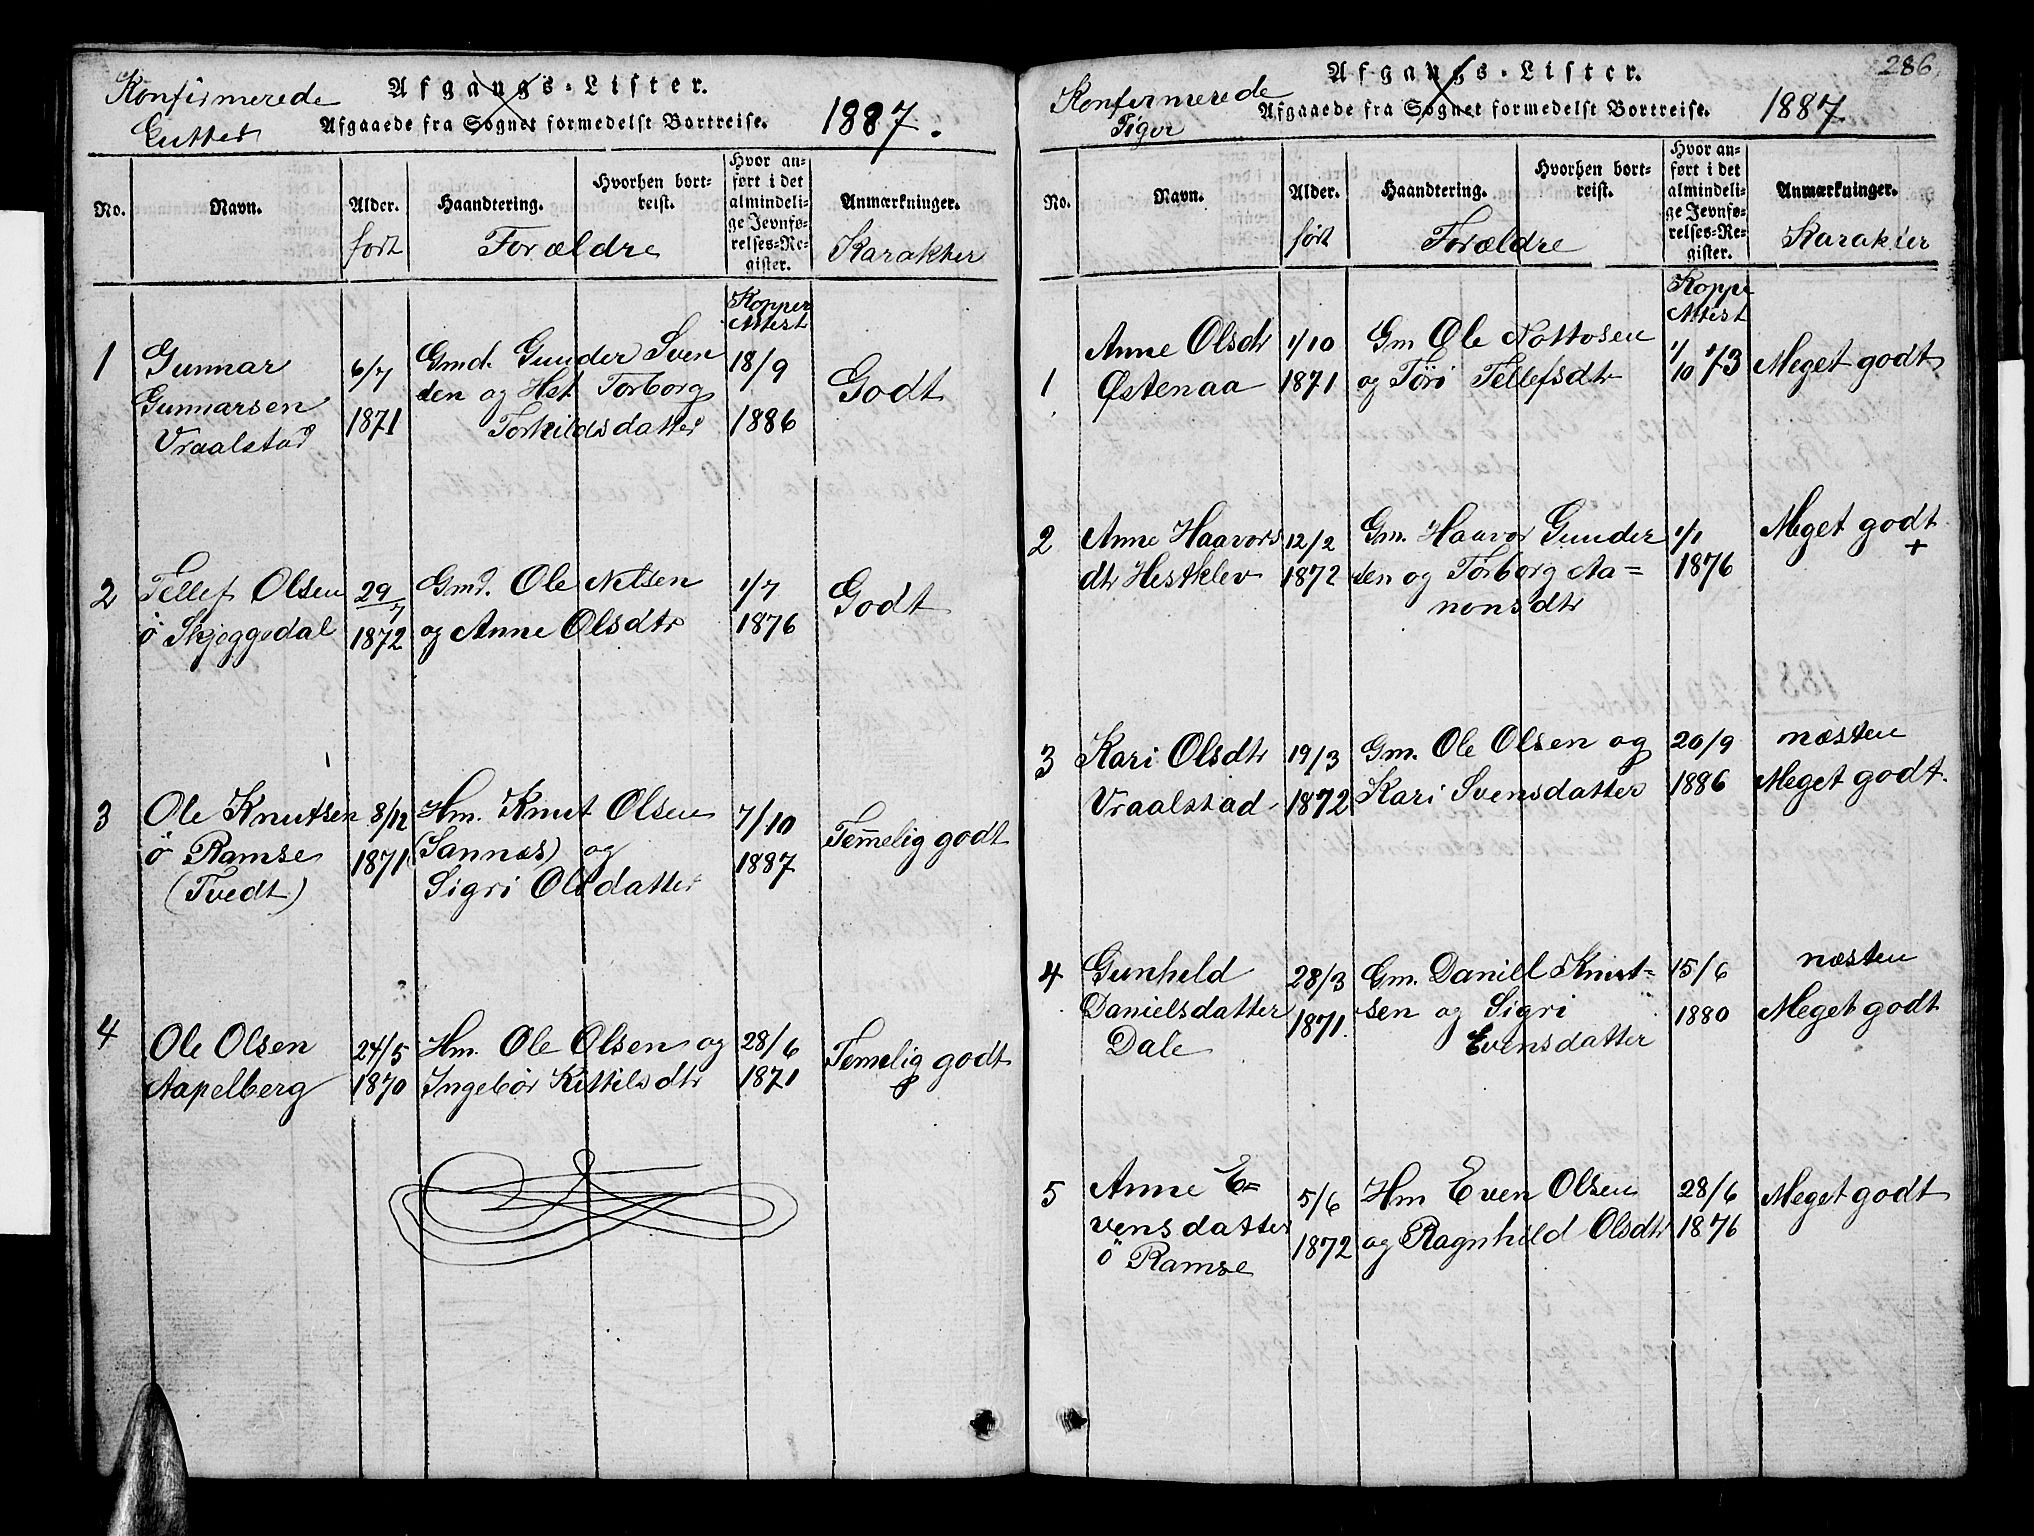 Konfirmerede
Gutter
Afgangs-Lister.
Afgaaede fra Sognet formedelst Bortreise.
1887.
No.
Navn.
Alder.
født
Haandtering.
Hvorhen bort-
reist.
Forældre
Hvor an-
ført i det
almindeli-
ge Jevnfø-
relses-Re-
gister.
Anmærkninger.
Karakter
Kopper
Attest
1
Gunnar
Gunnarsen
Vraalstad
6/7
1871
Gmd. Gunder Sven
den og Hst Torborg
Torkildsdatter
18/9
1886
Godt
2
Tellef Olsen
ö Skjeggedal
29/7
1872
Gmd. Ole Nilsen
og Anne Olsdtr
1/7
1876
Godt
3
Ole Knutsen
ö Ramse
(Tvedt)
8/12
1871
Hm. Knut Olsen
(Sannæs) og
Sigri Olsdatter
7/10
1887
Temmelig godt
4
Ole Olsen
Aapelberg
24/5
1870
Hm. Ole Olsen og
Ingebör Kittilsdtr
28/6
1871
Temelig godt
286
Konfirmerede
Piger
Afgangs-Lister.
Afgaaede fra Sognet formedelst Bortreise.
1887
No.
Navn.
Alder.
født
Haandtering.
Hvorhen bort-
reist.
Forældre
Hvor an-
ført i det
almindeli-
ge Jevnfø-
relses-Re-
gister.
Anmærkninger.
Karakter
Koppe
Attest
1
Anne Olsdtr
Østenaa
1/10
1871
Gm Ole Nottosen
og Töri Tellefsdtr
1/10 73
Meget godt
2
Anne Haavors
dtr Hestklev
12/2
1872
Gm. Haavor Gunder
sen og Torborg Aa=
nonsdtr
1/1
1876
Meget godt
+
3
Kari Olsdtr
Vraalstad
19/3
1872
Gm. Ole Olsen og
Kari Svensdatter
20/9
1886
næsten
Meget godt.
4
Gunheld
Danielsdatter
Dale
28/3
1871.
Gm. Daniel Knut=
sen og Sigri
Evensdatter
15/6
1880
næsten
Meget godt
5
Anne E=
vensdatter
ö Ramse
5/6
1872
Hm Even Olsen
og Ragnhild Olsdtr
28/6
1876
Meget godt